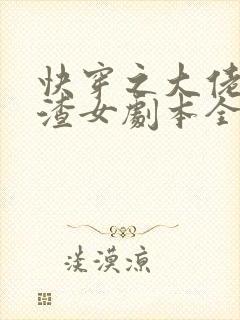 快穿之大佬
渣女劇本全
淡漠涼